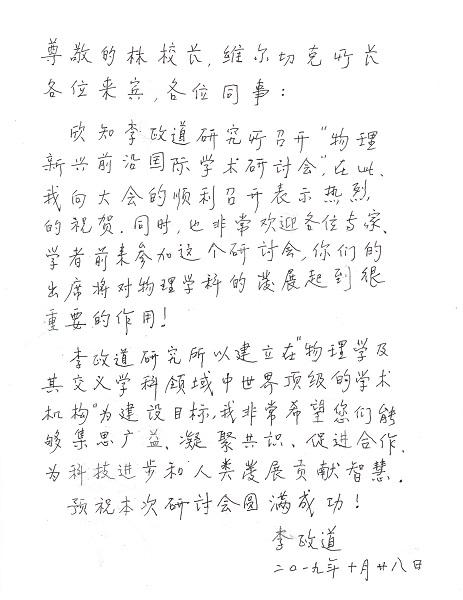 尊敬的林校长,维尔切克所长
各位来宾,各位同事:
欣知李政道研究所召开"物理
新兴前沿国际学术研讨会",在此、
我向大会的顺利召开表示热烈
的祝贺.同时,也非常欢迎各位专家、
学者前来参加这个研讨会,你们的
出席将对物理学科的发展起到很
重要的作用!
李政道研究所以建立在"物理学及
其交义学科领域中世界顶级的学术
机构"为建设目标,我非常希望您们能
够集思广益、凝聚共识、促进合作.
为科技进步和人类发展贡献智慧.
预祝本次研讨会圆满成功!
李政道
二〇一九年十月廿八日